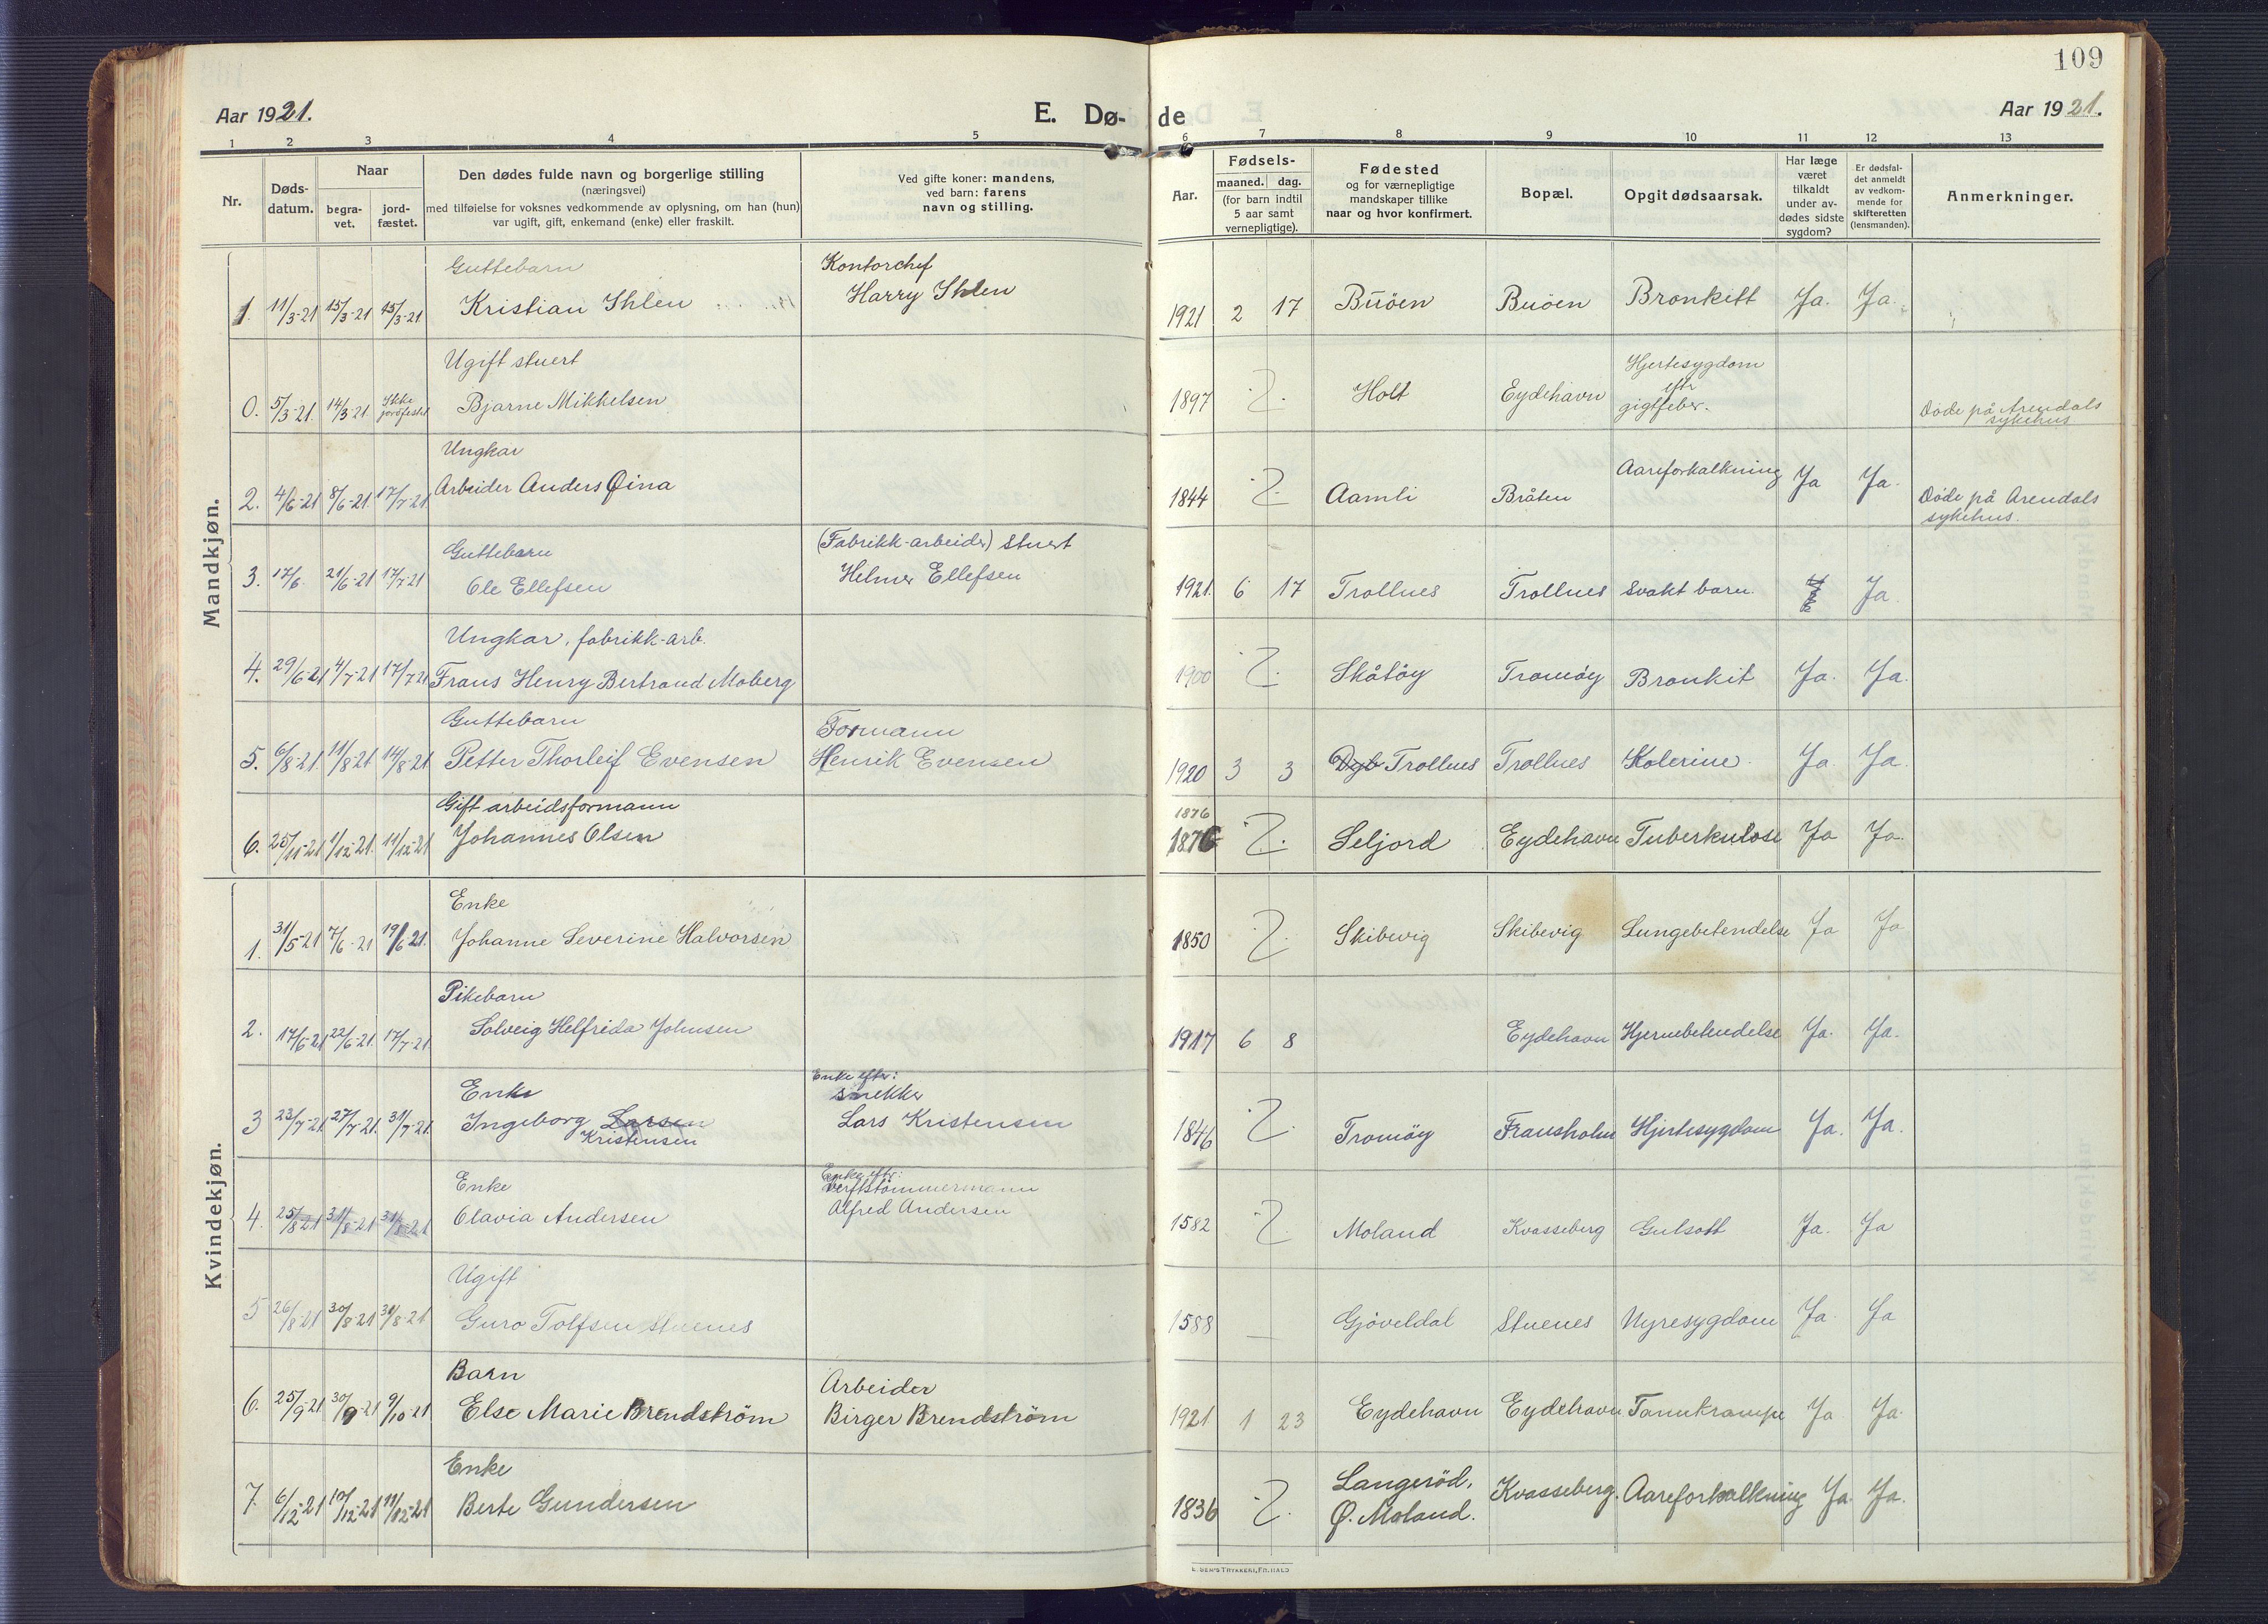 109
Aar 1921.
E. Dø-
de
Aar 1921.
1 2 3 4 5 6 7 8 9 10 11 12 13
Nr.
Døds-
datum.
Naar
begra-
vet.
jord-
fæstet.
Den dødes fulde navn og borgerlige stilling
(næringsvei)
med tilføielse for voksnes vedkommende av oplysning, om han (hun)
var ugift, gift, enkemand (enke) eller fraskilt.
Ved gifte koner: mandens,
ved barn: farens
navn og stilling.
Aar.
Fødsels-
maaned. dag.
(for barn indtil
5 aar samt
vernepligtige).
Fødested
og for værnepligtige
mandskaper tillike
naar og hvor konfirmert.
Bopæl.
Opgit dødsaarsak.
Har læge
været
tilkaldt
under av-
dødes sidste
sygdom?
Er dødsfal-
det anmeldt
av vedkom-
mende for
skifteretten
(lensmanden).
Anmerkninger.
Mandkjøn.
Guttebarn Kontorchef
1. 11/3-21 15/3-21 15/3-21 Kristian Ihlen Harry Ihlen 1921 2 17 Buöen Buöen Bronkitt Ja. Ja.
Ugift stuert Hjertesygdom
0. 5/3-21. 14/3-21 Ikke jordfestet Bjarne Mikkelsen 1897 Holt Eydehavn efter gigtfeber. Döde på Arendals
sykehus
Ungkar
2. 4/6-21 8/6-21 17/7-21 Arbeider Anders Øina 1844 Aamli Bråten Aareforkalkning Ja Ja. Döde på Arendals
sykehus.
Guttebarn (Fabrikk-arbeider) Stuert
3. 17/6. 21/6-21 17/7-21 Ole Ellefsen Helmer Ellefsen 1921. 6 17 Trollnes Trollnes Svakt barn. Ja
Ungkar, fabrikk-arb.
4. 29/6-21 4/7-21 17/7-21 Frans Henry Bertrand Moberg 1900 Skåtöy Tromöy Bronkit Ja. Ja.
Guttebarn Formann
5. 6/8-21. 11/8-21 14/8-21 Petter Thorleif Evensen Henrik Evensen 1920 3 3 Dyb Trollnes Trollnes Kolerine. Ja. Ja.
Gift arbeidsformann 1876
6. 25/11-21 1/12-21. 11/12-21 Johannes Olsen 1876 Seljord Eydehavn Tuberkulose Ja Ja.
Kvindekjøn.
Enke
1. 31/5-21 7/6-21 19/6-21. Johanne Severine Halvorsen 1850 Skibevig Skibevig Lungebetendelse Ja Ja
Pikebarn
2. 17/6-21 22/6-21. 17/7-21. Solveig Helfrida Johnsen 1917 6 8 Eydehavn Hjernebetendelse Ja. Ja.
Enke Enke efter:
snekker
3 23/7-21 27/7-21. 31/7-21. Ingeborg Larsen Lars Kristensen 1846 Tromöy Fransholm Hjertesygdom Ja. Ja.
Kristensen
Enke Enke eftr:
Verftstömmermann
4. 25/8-21 31/8-21 31/8-21 Olavia Andersen Alfred Andersen 1582 Moland Kvasseberg Gulsott Ja. Ja
Ugift
5 26/8-21 30/8-21 31/8-21 Guro Tolfsen Stuenes 1588 Gjöveldal Stuenes Nyresygdom Ja. Ja
Barn Arbeider
6. 25/9-21 30/9-21 9/10-21 Else Marie Brendström Birger Brendström 1921 1 23 Eydehavn Eydehavn Tannkrampe Ja Ja.
Enke Langeröd,
7. 6/12-21 10/12-21 11/12-21 Berte Gundersen 1836 Ø. Moland. Kvasseberg. Aareforkalkning Ja. Ja.